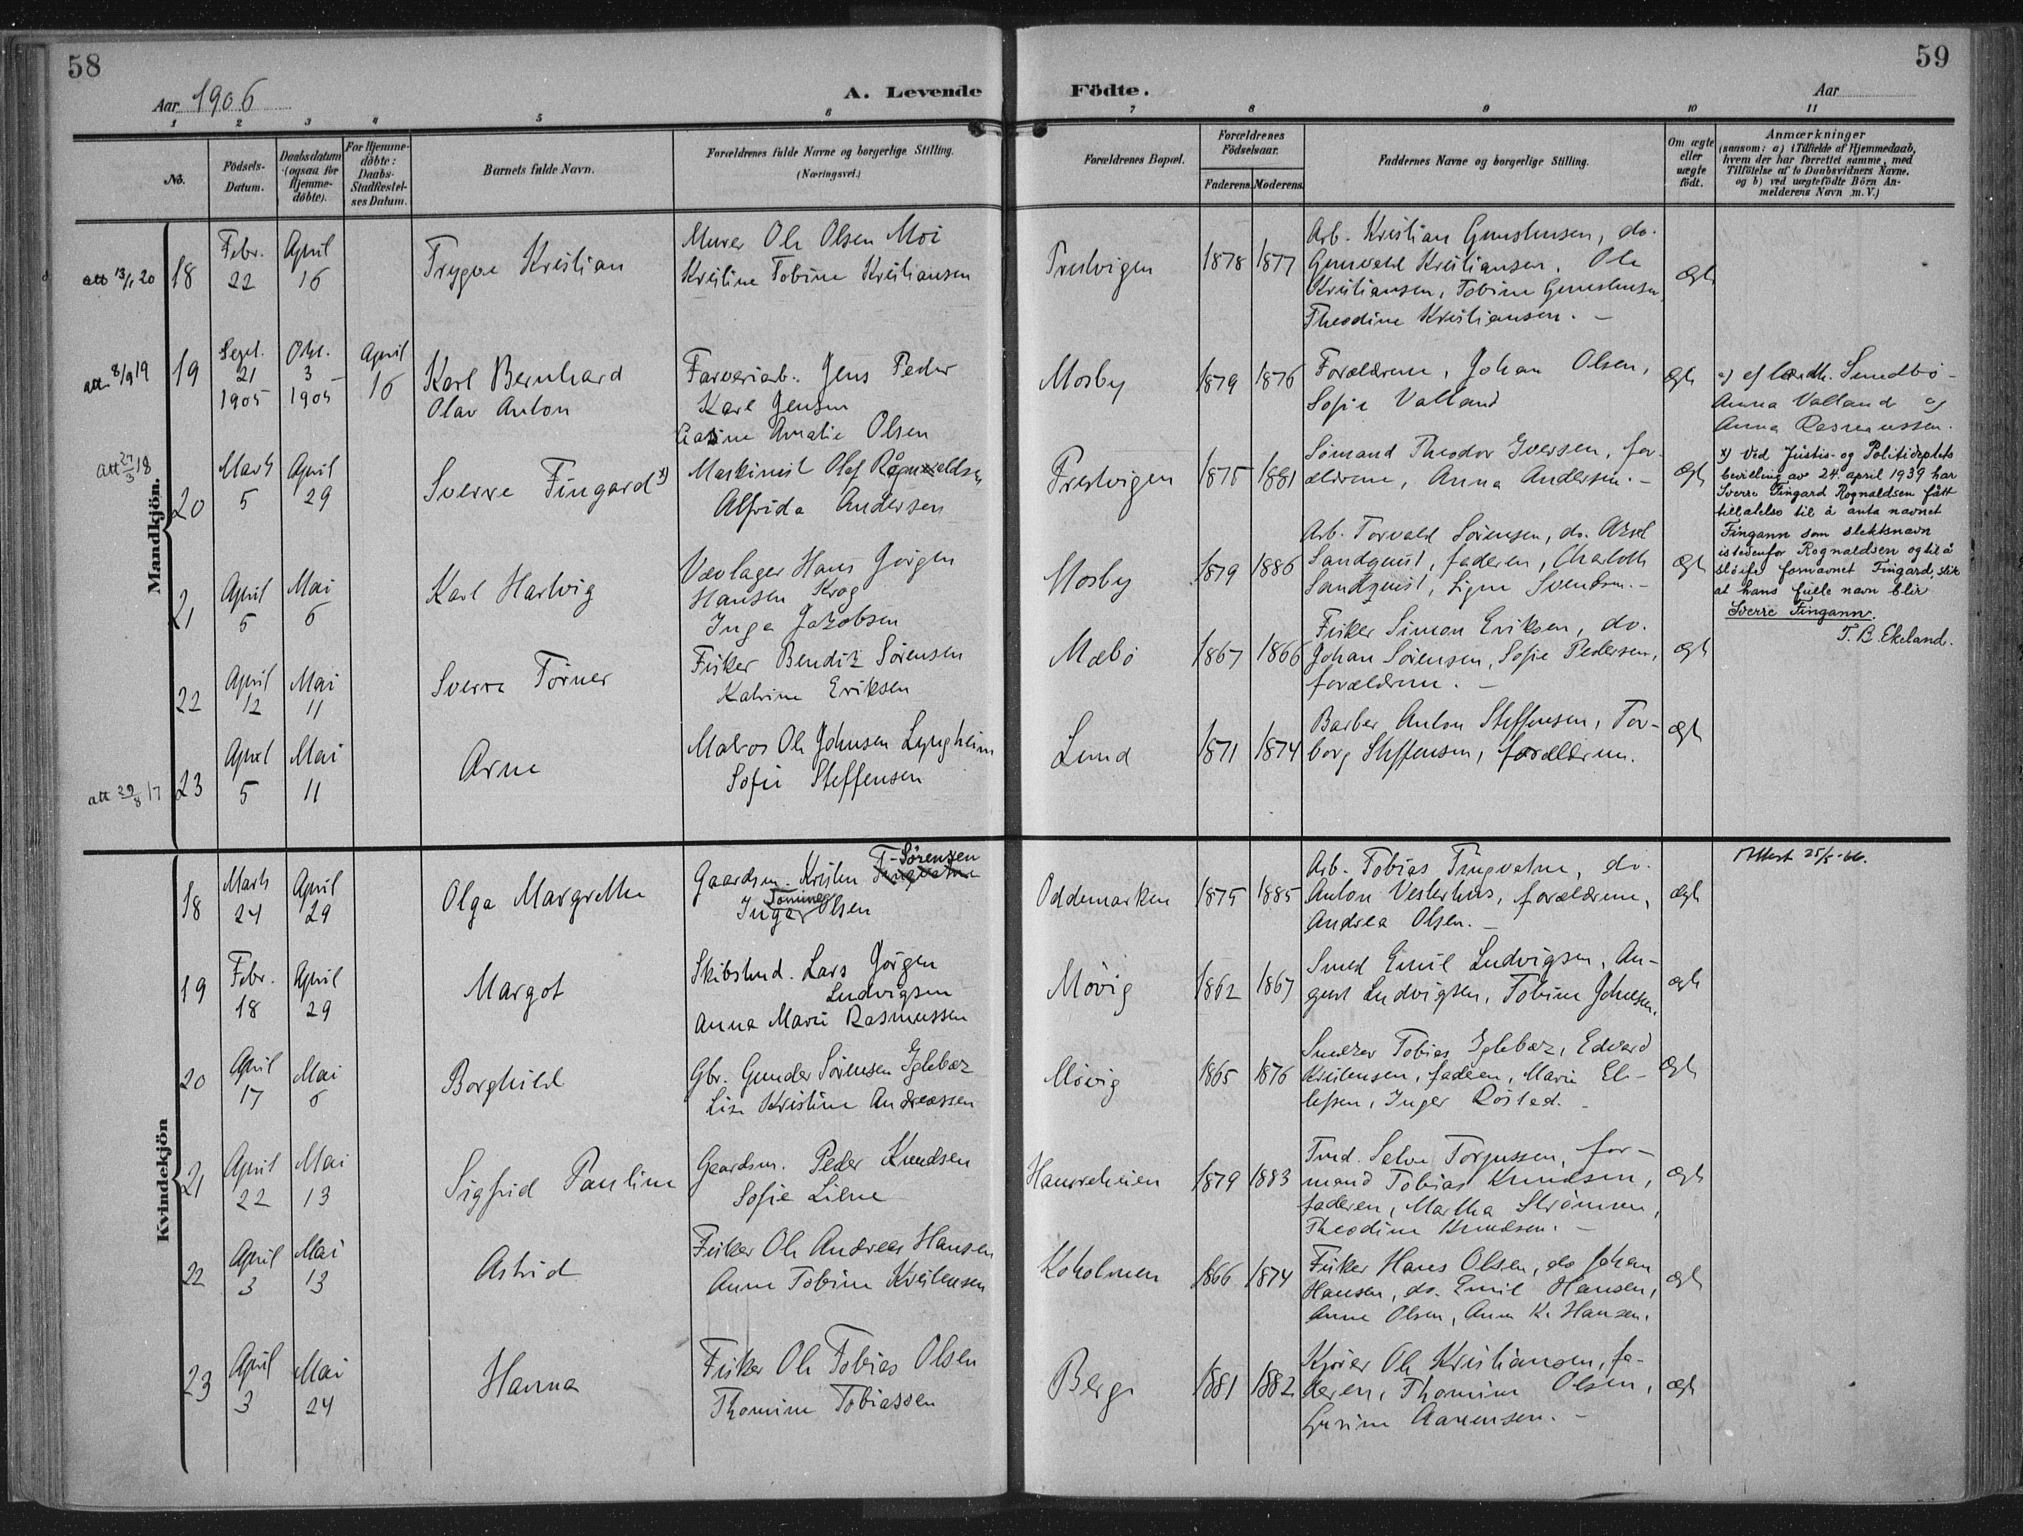 58
Aar 1906
A. Levende
1 2 3 4 5 6
No.
Födsels-
Datum.
Daabsdatum
(ogsaa for
Hjemme-
döbte).
For Hjemme-
döbte:
Daabs-
Stadfæstel-
ses Datum.
Barnets fulde Navn.
Forældrenes fulde Navne og borgerlige Stilling.
(Næringsvei.)
Mandkjön.
att 13/1 20
18
Febr.
22
April
16
Trygve Kristian
Murer Ole Olsen Moi
Kristine Tobine Kristiansen
att 8/9 19
19
Sept.
21
1905
Okt.
3
1905
April
16
Karl Bernhard
Olav Anton
Farveriarb. Jens Peder
Karl Jensen
Gasine Amalie Olsen
att 27/3 18
20
Marts
5
April
29
Sverre Fingard x)
Maskinist Olaf Rognaldsen
Alfrida Andersen
21
April
5
Mai
6
Karl Hartvig
Vævlager Hans Jørgen
Hansen Krog
Inga Jakobsen
22
April
12
Mai
11
Sverre Tørner
Fisker Bendik Sørensen
Katrine Eriksen
att 29/8 17
23
April
5
Mai
11
Arne
Matros Ole Johnsen Lyngheim
Sofie Steffensen
Kvindekjön
18
Marts
24
April
29
Olga Margrethe
T-Sørensen
Gaardm. Kristen Tingvatne
Tomine
Inger Olsen
19
Febr.
18
April
29
Margot
Skibstmd. Lars Jørgen
Ludvigsen
Anna Marie Rasmussen
20
April
17
Mai
6
Borghild
Gbr. Gunder Sørensen Iglebæk
Lise Kristine Andreassen
21
April
22
Mai
13
Sigfrid Pauline
Gaardm. Peder Knudsen
Sofie Liene
22
April
3
Mai
13
Astrid
Fisker Ole Andreas Hansen
Anne Tobine Kristensen
23
April
3
Mai
24
Hanna
Fisker Ole Tobias Olsen
Thomine Tobiassen
59
Födte.
Aar
7 8 9 10 11
Forældrenes Bopæl.
Forældrenes
Födselsaar.
Faderens. Moderens.
Faddernes Navne og borgerlige Stilling.
Om ægte
eller
uægte
født.
Anmærkninger
(saasom: a) i Tilfælde af Hjemmedaab,
hvem der har forrettet samme, med
Tilföielse af to Daabsvidners Navne,
og b) ved uægtefödte Börn An-
melderens Navn m. V.)
Prestvigen
1878 1877
Arb. Kristian Gunstensen, do.
Gunvald Kristiansen, Ole
Kristiansen, Tobine Gunstensen
Theodine Kristiansen. –
Ægte
Mosby
1879 1876
Forældrene, Johan Olsen,
Sofie Valland
Ægte
a) af Landh. Sundbø –
Anna Valland og
Anna Rasmussen.
Prestvigen
1875 1881
Sømand Theodor Iversen, for-
ældrene, Anna Andersen. –
Ægte
x) Ved Justis- og Politideptets
bevilling av 24. april 1939 har
Sverre Fingard Rognaldsen fått
tillatelse til å anta navnet
Fingann som slektsnavn
istedenfor Rognaldsen og til å
sløife fornavnet Fingard, slik
at hans fulle navn blir
Sverre Fingann.
T. B. Ekeland.
Mosby
1879 1886
Arb. Torvald Sørensen, do. Aksel
Sandquist, faderen, Charlotte
Sandquist, Signe Svendsen. –
Ægte
Mæbø
1867 1866
Fisker Simon Eriksen, do.
Johan Sørensen, Sofie Pedersen,
forældrene. –
Ægte
Lund
1871 1874
Barber Anton Steffensen, Tor-
borg Steffensen, forældrene.
Ægte
Oddemarken
1875 1885
Arb. Tobias Tingvatne, do.
Anton Vesterhus, forældrene,
Andrea Olsen. –
Ægte
Attest 25/5-66.
Møvig
1862 1867
Smed Emil Ludvigsen, Au-
gust Ludvigsen, Tobine Johnsen.
ægte
Møvig
1865 1876
Snedker Tobias Iglebæk, Edvard
Kristensen, faderen, Marie El-
lefsen, Inger Røsted. –
Ægte
Hannevheien
1879 1883
Tmd. Salve Torjussen, for-
mand Tobias Knudsen,
faderen, Martha Strømme,
Theodine Knudsen. –
ægte
Koholmen
1866 1874
Fisker Hans Olsen, do Johan
Hansen, do. Emil Hansen,
Anne Olsen, Anna K. Hansen.
ægte
Berge
1881 1882
Kjører Ole Kristiansen, fa-
deren, Thomine Olsen,
Gusine Aanensen. –
ægte